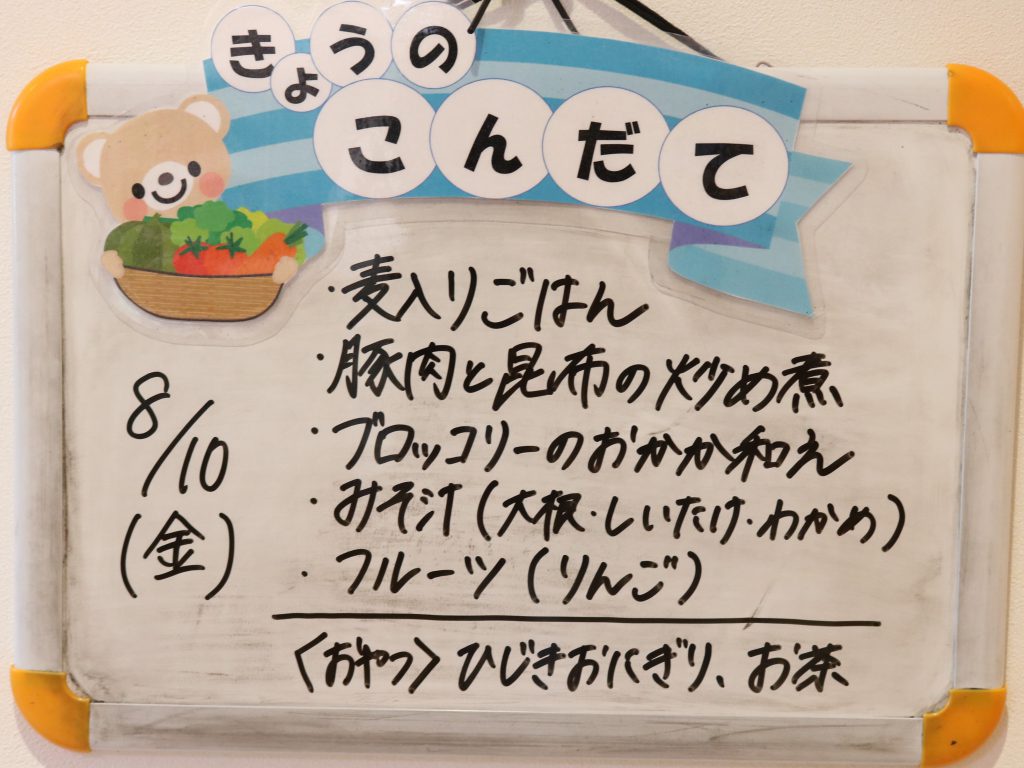 きょうの
こんだて
8/10
(金)
・麦入りごはん
・豚肉と昆布の炒め煮
・ブロッコリーのおかか和え
・みそ汁(大根・しいたけ・わかめ)
・フルーツ(りんご)
〈おやつ〉ひじきおにぎり、お茶